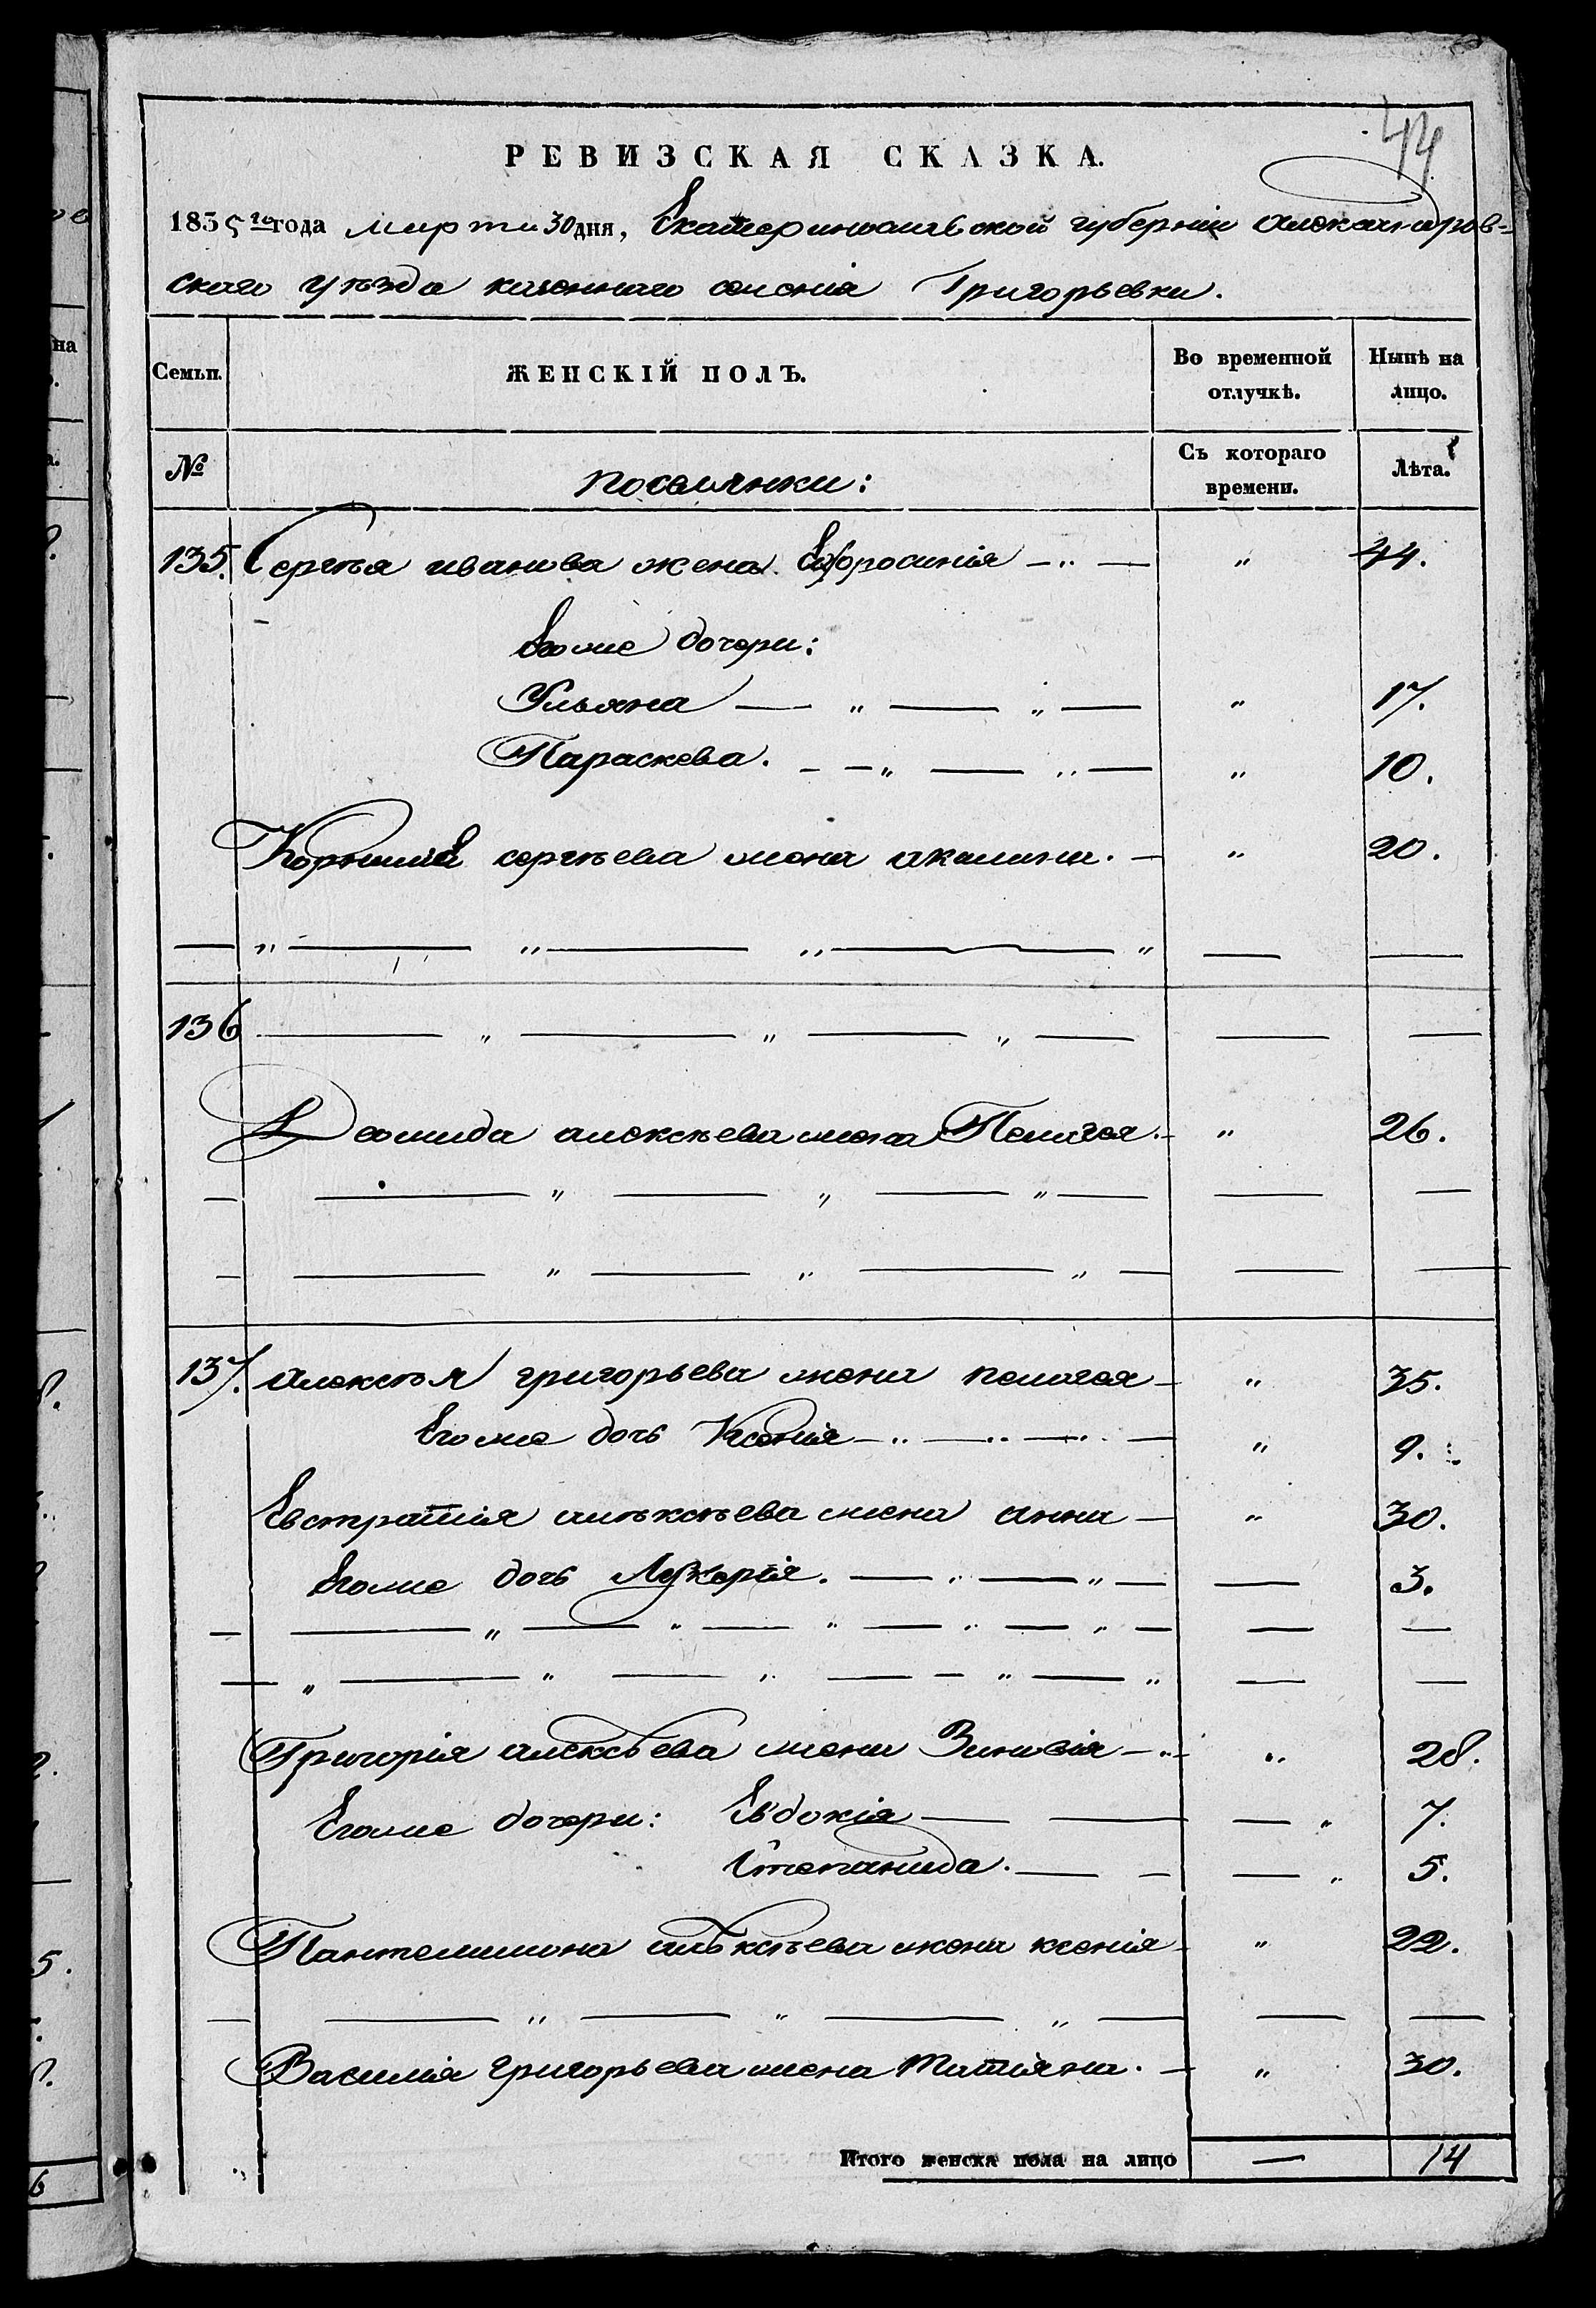 44
РЕВИЗСКАЯ СКАЗКА.
1835 го года марта 30 дня, Екатеринославской губерніи Александров-
скаго уѣзда казеннаго селенія Григорьевки.
Семьи. ЖЕНСКІЙ ПОЛЪ. Во временной отлучкѣ. Нынѣ на лицо.
№ Поселянки: Съ котораго времени. Лѣта.
135. Сергѣя иванова жена Ефросинія — „ — „ 44.
Егоже дочери:
Ульяна — „ — „ — „ 17.
Параскева. — — „ — „ — „ 10.
Корнилія сергѣева жена акилина. — „ 20.
— „ — „ — „ — „ — —
136 — „ — „ — „ — — —
Деомида алексѣева жена Пелагея. — „ 26.
— — „ — „ — „ — — —
— — „ — „ — „ — — —
137. алексѣя григорьева жена пелагея — „ 35.
Егоже дочь Ксенія — „ — „ — „ — „ 9.
Евстратія алѣксѣева жена анна — „ 30.
Егоже дочь Лукерія. — „ — „ — — 3.
— — „ — „ — „ — „ — „ — — —
— „ — „ — „ — — „ — „ — —
Григорія алексѣева жена Зиновія — „ „ 28.
Егоже дочери: Евдокія — — — „ 7.
Степанида. — — — „ 5.
Пантелимона алѣксѣева жена ксенія — „ 22.
— — „ — „ — „ — — —
Василія григорьева жена татіяна. — „ 30.
Итого женска пола на лицо — 14